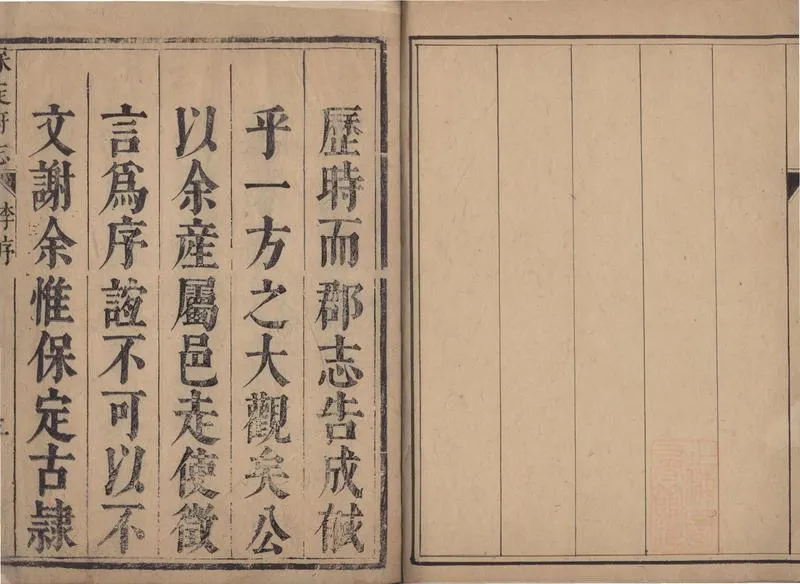 歷時而郡志告成
乎一方之大觀矣公
以余産屬邑走使徵
言爲序誼不可以不
文謝余惟保定古隷
保定府志
李序